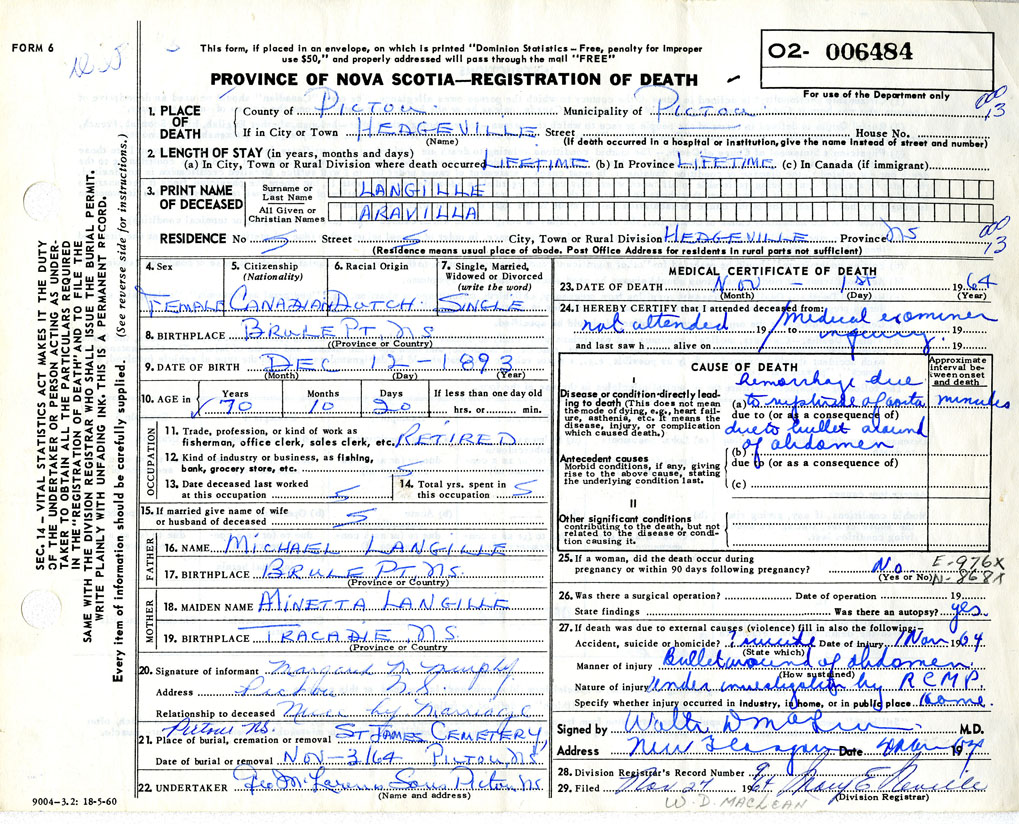 FORM 6
This form, if placed in an envelope, on which is printed "Dominion Statistics – Free, penalty for improper
use $50," and properly addressed will pass through the mail "FREE"
O2- 006484
For use of the Department only
PROVINCE OF NOVA SCOTIA—REGISTRATION OF DEATH
1. PLACE OF DEATH County of PICTOU Municipality of PICTOU
If in City or Town HEDGEVILLE Street House No.
(Name) (If death occurred in a hospital or institution, give the name instead of street and number)
000
13
2. LENGTH OF STAY (in years, months and days)
(a) In City, Town or Rural Division where death occurred LIFETIME (b) In Province LIFETIME (c) In Canada (if immigrant)
3. PRINT NAME OF DECEASED
Surname or Last Name LANGILLE
All Given or Christian Names ARAVILLA
RESIDENCE No S Street S City, Town or Rural Division HEDGEVILLE Province NS
(Residence means usual place of abode. Post Office Address for residents in rural parts not sufficient)
000
13
4. Sex FEMALE
5. Citizenship (Nationality) CANADIAN
6. Racial Origin DUTCH
7. Single, Married, Widowed or Divorced (write the word) SINGLE
8. BIRTHPLACE BRULE PT. NS
(Province or Country)
9. DATE OF BIRTH DEC 12 - 1893
(Month) (Day) (Year)
10. AGE in Years 70 Months 10 Days 20 If less than one day old hrs. or min.
OCCUPATION
11. Trade, profession, or kind of work as
fisherman, office clerk, sales clerk, etc. RETIRED
12. Kind of industry or business, as fishing,
bank, grocery store, etc. S
13. Date deceased last worked
at this occupation S
14. Total yrs. spent in
this occupation S
15. If married give name of wife
or husband of deceased S
FATHER
16. NAME MICHAEL LANGILLE
17. BIRTHPLACE BRULE PT. NS.
(Province or Country)
MOTHER
18. MAIDEN NAME MINETTA LANGILLE
19. BIRTHPLACE TRACADIE, NS.
(Province or Country)
20. Signature of informant Margaret Murphy
Address Pictou N.S.
Relationship to deceased Niece by Marriage
Pictou NS.
21. Place of burial, cremation or removal ST JAMES CEMETERY
Date of burial or removal NOV-3/64 PICTOU, NS.
22. UNDERTAKER Sons Pictou NS.
(Name and address)
9004-3.2: 18-5-60
MEDICAL CERTIFICATE OF DEATH
23. DATE OF DEATH NOV - 1st 1964
(Month) (Day) (Year)
24. I HEREBY CERTIFY that I attended deceased from:
not attended 19 / Medical examiner 19
and last saw h alive on inquiry. 19
CAUSE OF DEATH
Approximate interval between onset and death
I
Disease or condition directly leading to death (This does not mean the mode of dying, e.g., heart failure, asthenia, etc. It means the disease, injury, or complication which caused death.)
hemorrhage due
(a) to rupture of aorta minutes
due to (or as a consequence of)
due to bullet wound
(b) of abdomen
due to (or as a consequence of)
(c)
Antecedent causes
Morbid conditions, if any, giving rise to the above cause, stating the underlying condition last.
II
Other significant conditions
contributing to the death, but not related to the disease or condition causing it.
25. If a woman, did the death occur during
pregnancy or within 90 days following pregnancy? No
(Yes or No)
E-976X
N-868X
26. Was there a surgical operation? Date of operation 19
State findings Was there an autopsy? yes
27. If death was due to external causes (violence) fill in also the following:—
Accident, suicide or homicide? ?suicide Date of injury 1 Nov 1964
(State which)
Manner of injury Bullet wound of abdomen
(How sustained)
Nature of injury Under investigation by RCMP
Specify whether injury occurred in industry, in home, or in public place home
Signed by M.D.
Address New Glasgow Date 1964
28. Division Registrar's Record Number 94
29. Filed Nov 27 1964 Mary E. Neville
(Division Registrar)
W. D. MACLEAN
SEC. 14 – VITAL STATISTICS ACT MAKES IT THE DUTY
OF THE UNDERTAKER OR PERSON ACTING AS UNDER-
TAKER TO OBTAIN ALL THE PARTICULARS REQUIRED
IN THE "REGISTRATION OF DEATH" AND TO FILE THE
SAME WITH THE DIVISION REGISTRAR WHO SHALL ISSUE THE BURIAL PERMIT.
WRITE PLAINLY WITH UNFADING INK. THIS IS A PERMANENT RECORD.
Every item of information should be carefully supplied. (See reverse side for instructions.)